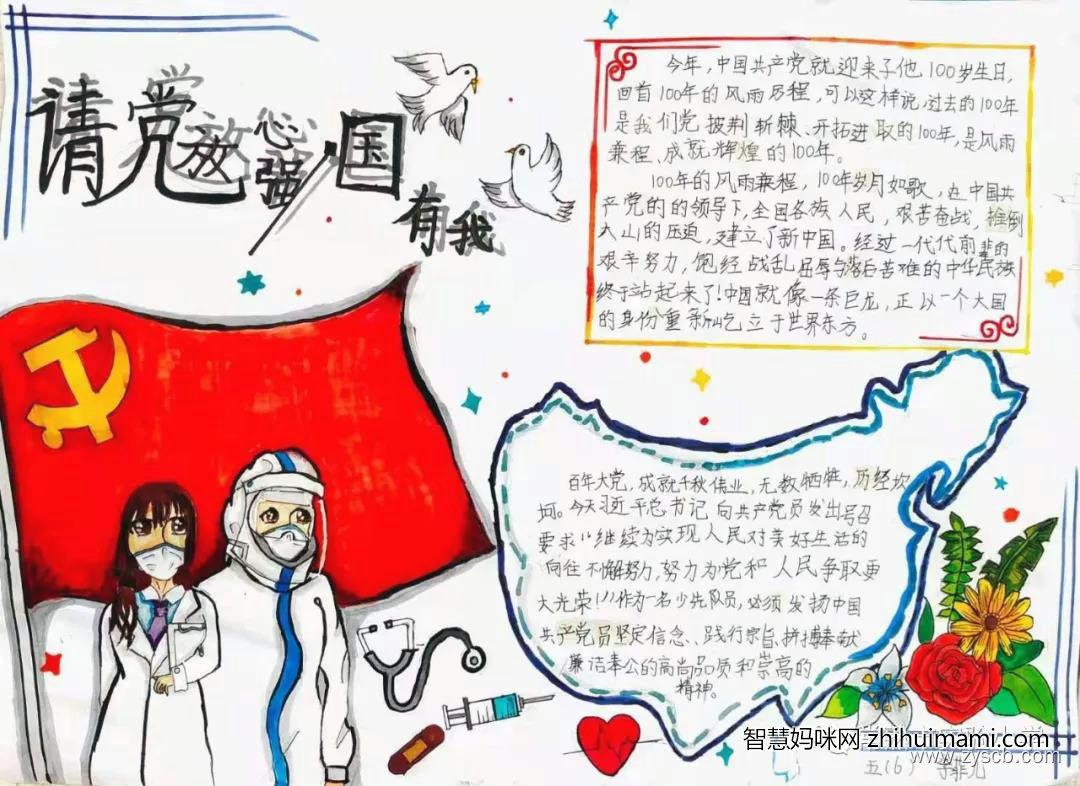 请党放心
强国
有我
今年，中国共产党就迎来了他100岁生日，
回首100年的风雨历程，可以这样说，过去的100年
是我们党披荆斩棘、开拓进取的100年，是风雨
乘程、成就辉煌的100年。
100年的风雨乘程，100年岁月如歌，在中国共
产党的的领导下，全国各族人民，艰苦奋战，推倒
大山的压迫，建立了新中国。经过一代代前辈的
艰辛努力，饱经战乱屈辱与落后苦难的中华民族
终于站起来了！中国就像一条巨龙，正以一个大国
的身份重新屹立于世界东方。
百年大党，成就千秋伟业，无数牺牲，历经坎
坷。今天习近平总书记向共产党员发出号召
要求“继续为实现人民对美好生活的
向往不懈努力，努力为党和人民争取更
大光荣！”作为一名少先队员，必须发扬中国
共产党员坚定信念、践行宗旨、拼搏奉献
廉洁奉公的高尚品质和崇高的
精神。
智慧妈咪网 zhihuimami.com
www.zyscb.com
五(6)